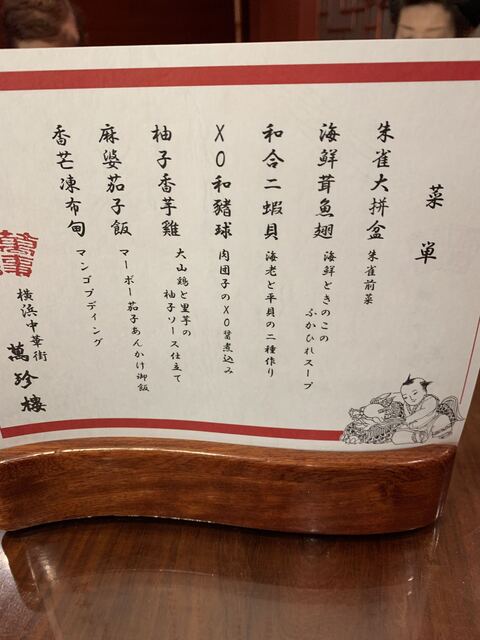 菜単
朱雀大拼盆
朱雀前菜
海鮮茸魚翅
海鮮ときのこの
ふかひれスープ
和合二蝦貝
海老と平貝の二種作り
XO和豬球
肉団子のXO醤煮込み
柚子香芋雞
大山鶏と里芋の
柚子ソース仕立て
麻婆茄子飯
マーボー茄子あんかけ御飯
香芒凍布甸
マンゴプディング
横浜中華街
萬珍樓